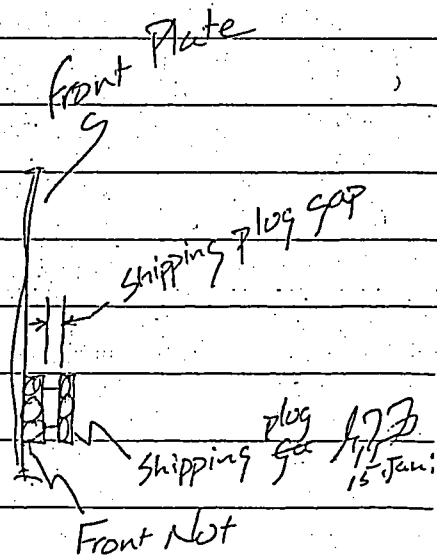 Front Plate
shipping plug gap
shipping plug
15 Jan
Front Nut